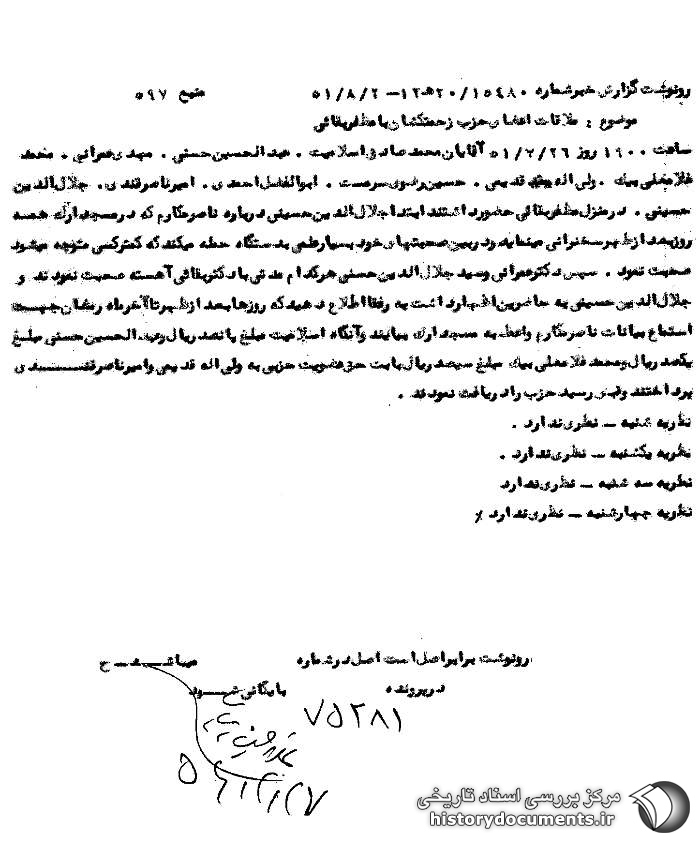 رونوشت گزارش خبر شماره ۱۵۴۸۰/۲۰ هـ ۱۲ – ۵۱/۸/۲ منبع ۵۹۷
موضوع : ملاقات اعضای حزب زحمتکشان با مظفر بقائی
ساعت ۱۹۰۰ روز ۵۱/۷/۲۶ آقایان محمد صادق اسلامیت ، عبدالحسین حسنی ، مهدی عمرانی ، محمد
غلامعلی بیك ، ولی اله قدیمی ، حسین رضوی سرمست ، ابوالفضل احمدی ، امیر ناصر قندی ، جلال الدین
حسینی ، در منزل مظفر بقائی حضور داشتند ابتدا جلال الدین حسینی درباره ناصر مکارم که در مسجد ارك همه
روز بعد از ظهر سخنرانی مینماید و در بین صحبتهای خود بسیار علمی بدستگاه حمله میکند که کمتر کسی متوجه میشود
صحبت نمود . سپس دکتر عمرانی و سید جلال الدین حسنی هر کدام مدتی با دکتر بقائی آهسته صحبت نمودند و
جلال الدین حسینی به حاضرین اظهار داشت به رفقا اطلاع دهید که روزها بعد از ظهر تا آخر ماه رمضان جهت
استماع بیانات ناصر مکارم واعظ به مسجد ارك بیایند و آنگاه اسلامیت مبلغ پانصد ریال و عبدالحسین حسنی مبلغ
یکصد ریال و محمد غلامعلی بیك مبلغ سیصد ریال بابت حق عضویت حزبی به ولی اله قدیمی و امیر ناصر قنـــــدی
پرداختند و قبض رسید حزب را دریافت نمودند .
نظریه شنبه – نظری ندارد .
نظریه یکشنبه – نظری ندارد .
نظریه سه شنبه – نظری ندارد
نظریه چهارشنبه – نظری ندارد ٪
رونوشت برابر اصل است اصل در شماره میباشـــد ح
در پرونده بایگانی شـــود
۷۵۲۸۱
مرکز بررسی اسناد تاریخی
historydocuments.ir